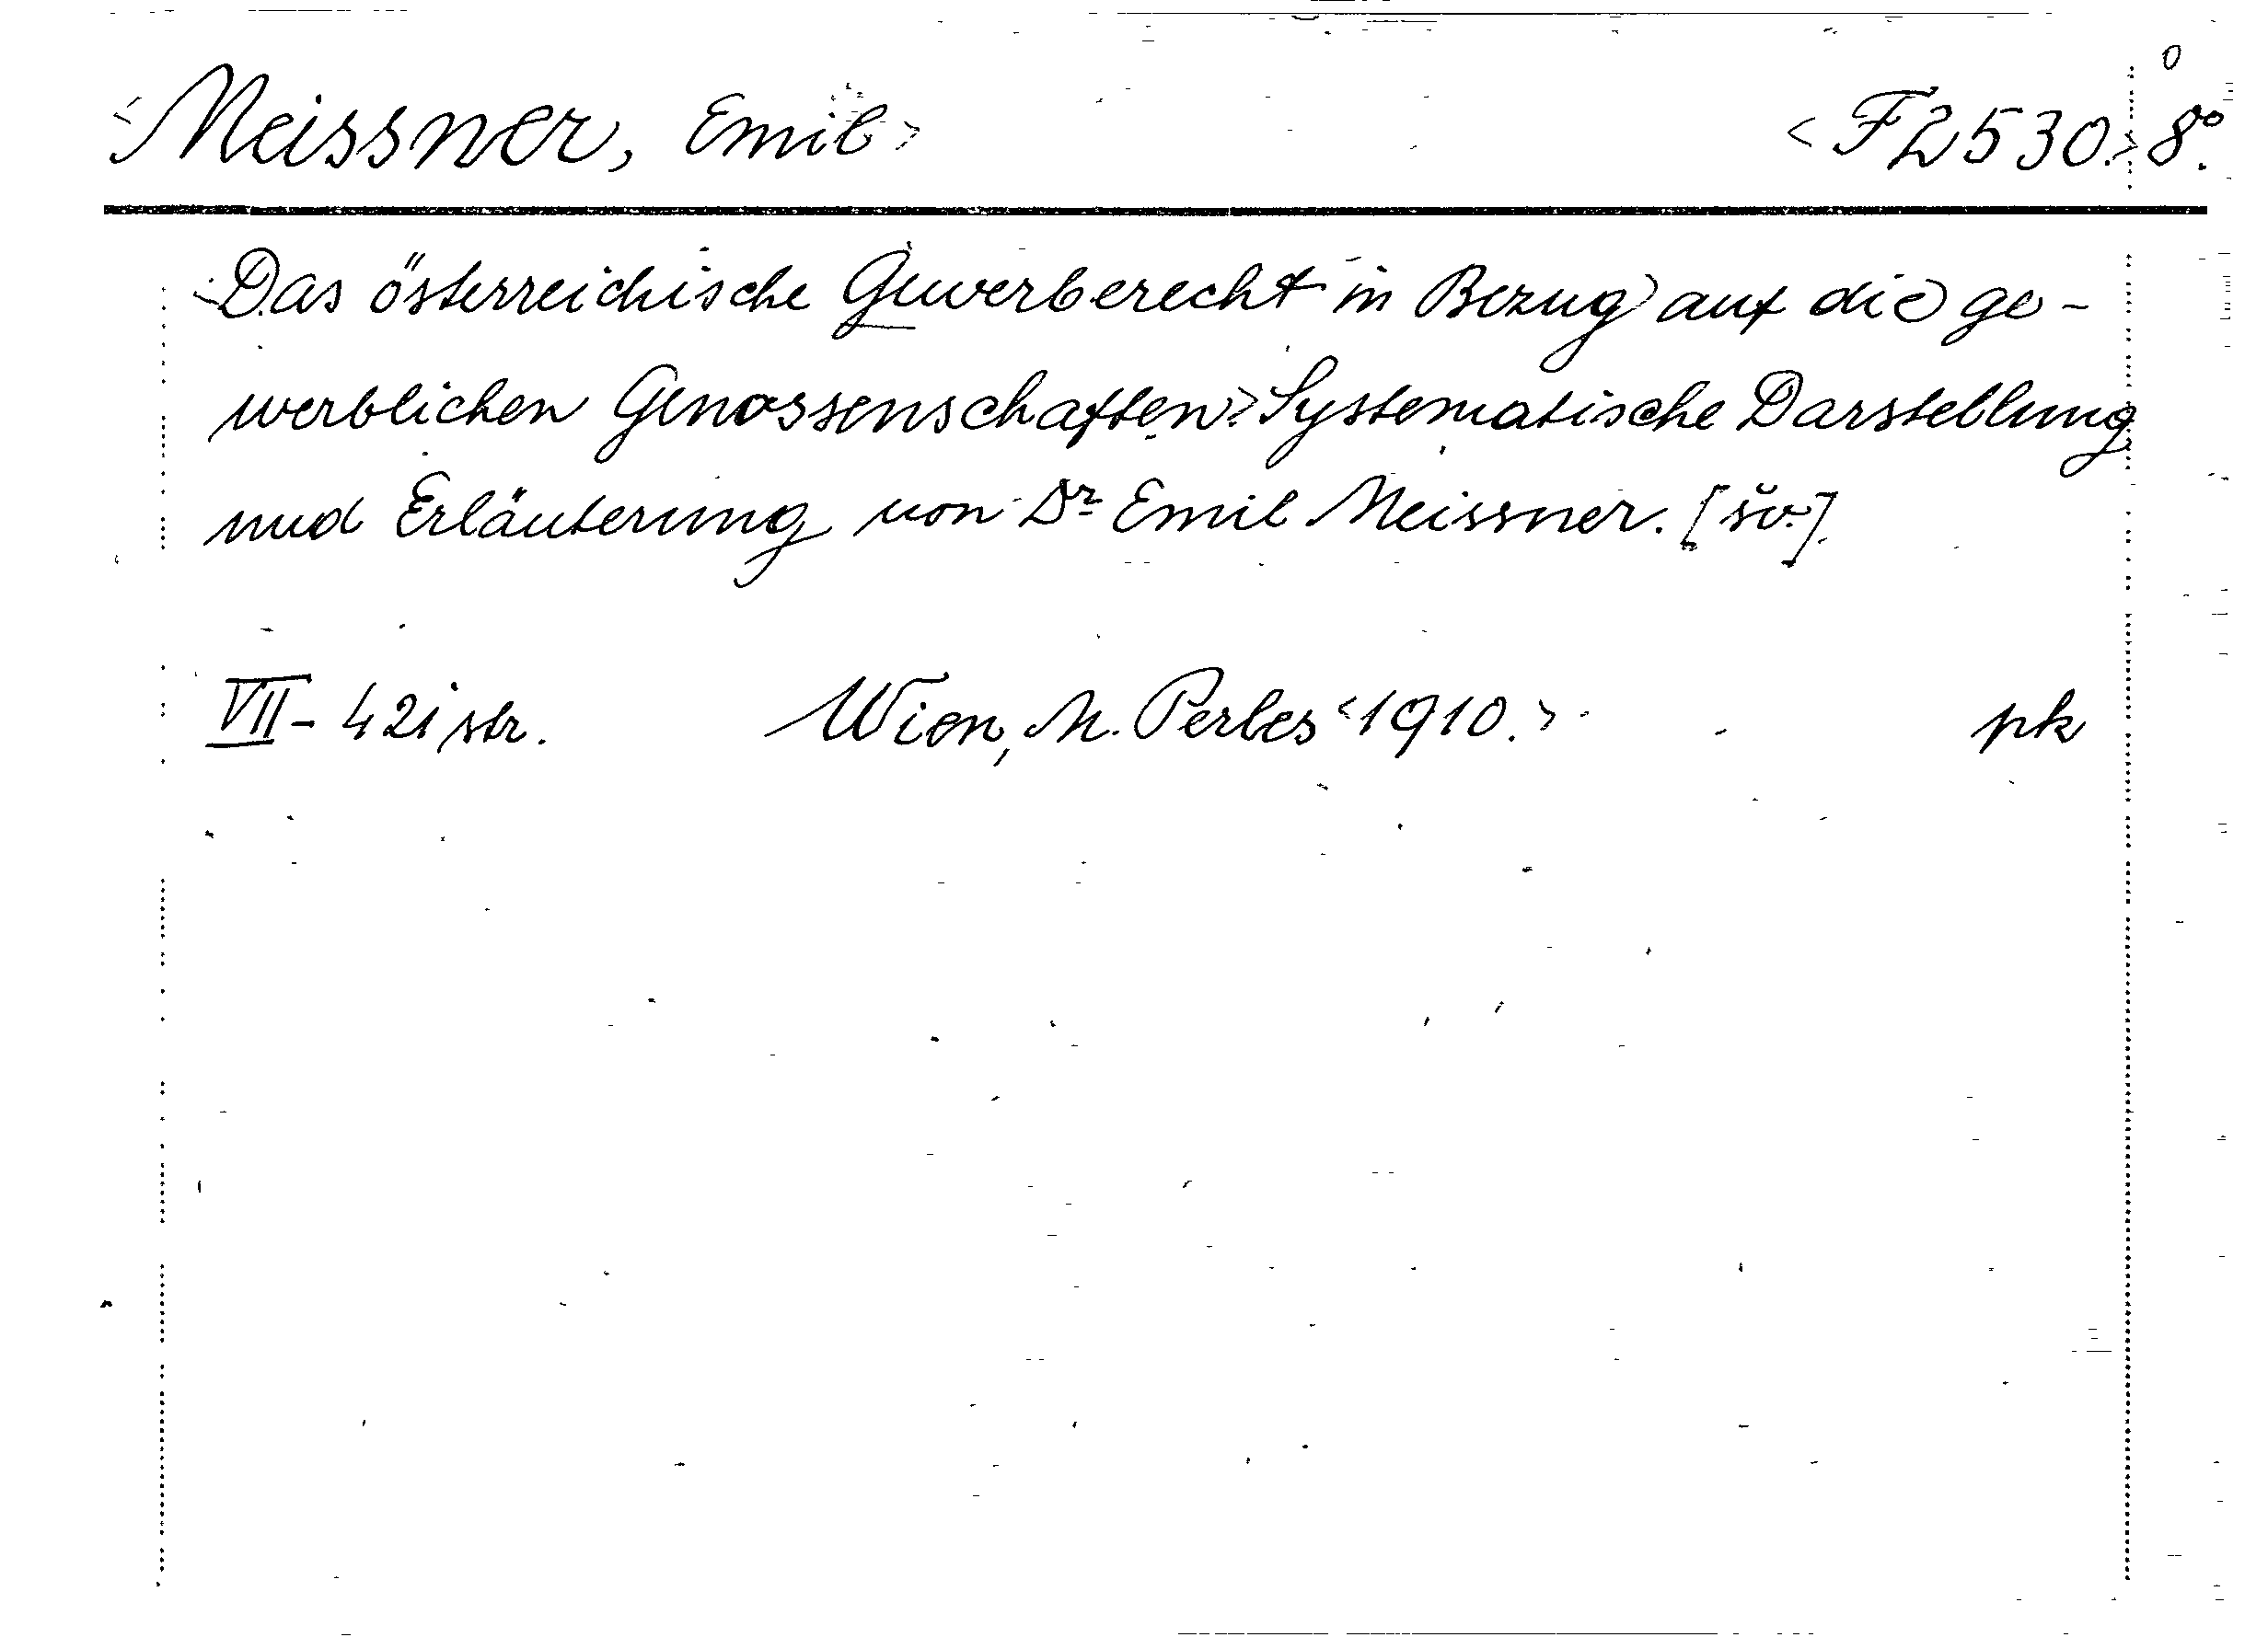 <Meissner, Emil> <F 2530.> 8°.
<Das österreichische Gewerberecht in Bezug auf die ge-
werblichen Genossenschaften.> Systematische Darstellung
und Erläuterung von Dr Emil Meissner. [šv.]
VII - 421 str. Wien, M. Perles <1910.> pk